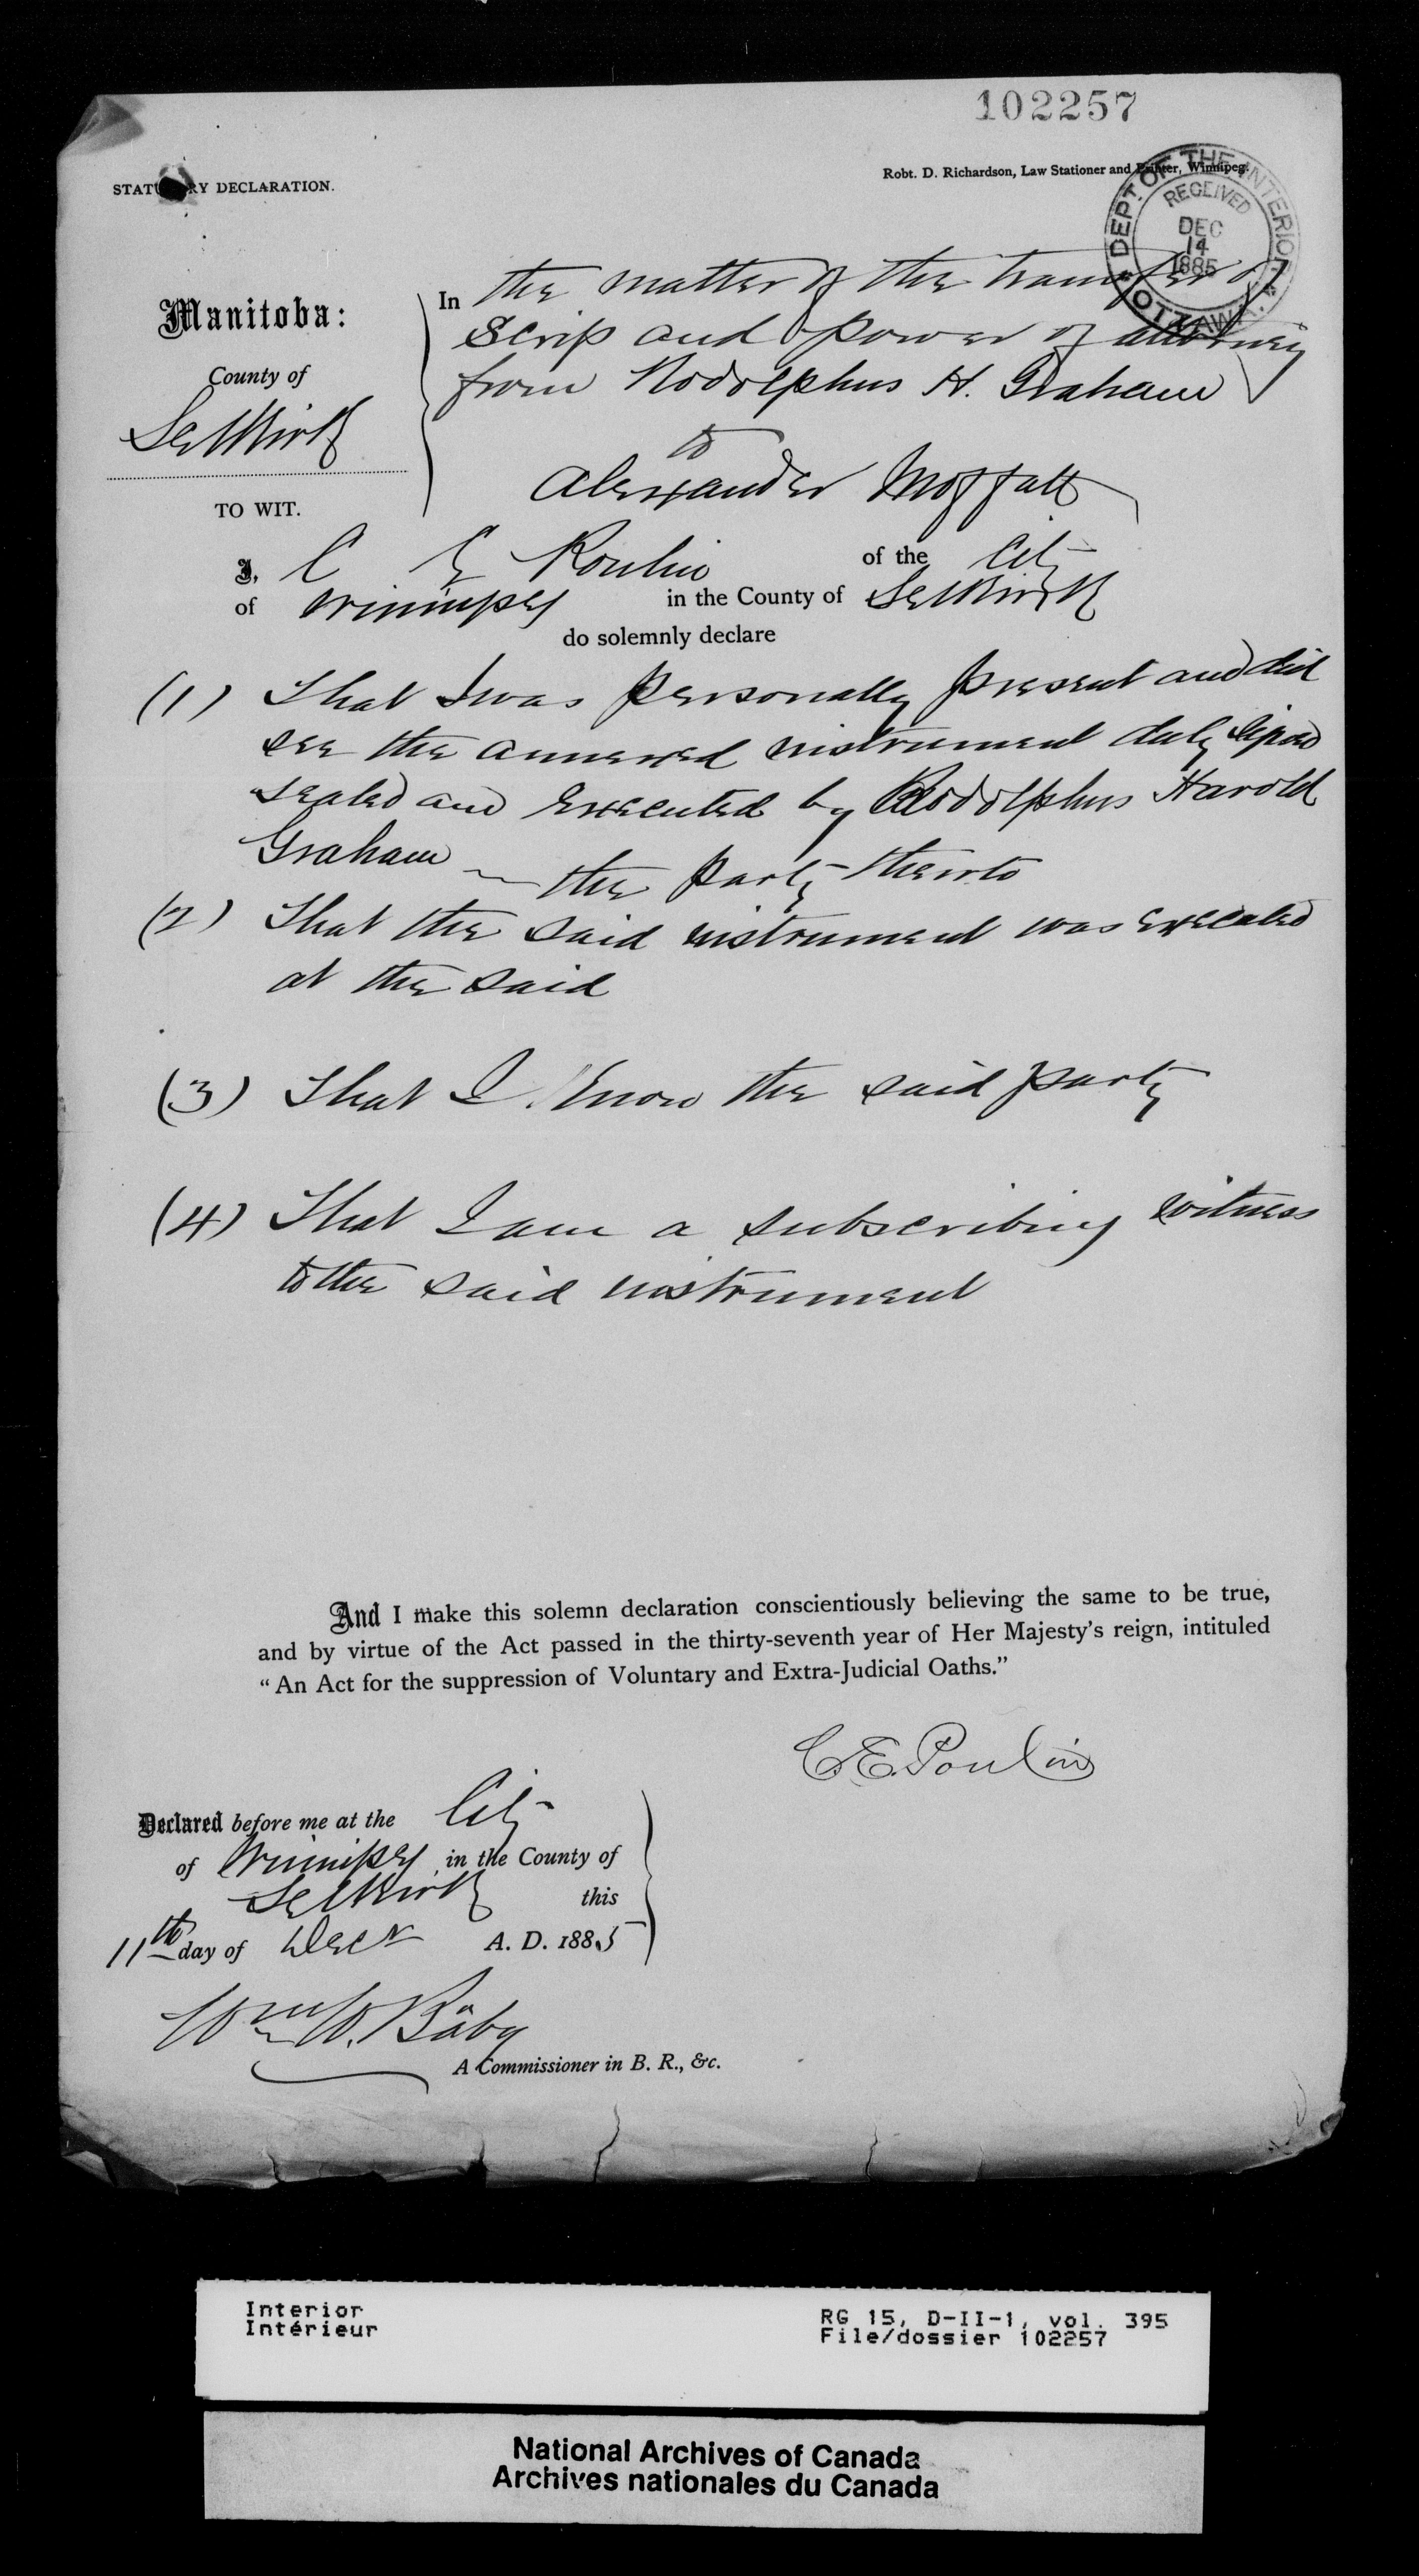 102257
STATUTORY DECLARATION.
Robt. D. Richardson, Law Stationer and Printer, Winnipeg.
DEPT. OF THE INTERIOR
RECEIVED
DEC
14
1885
OTTAWA
Manitoba:
County of
Selkirk
TO WIT.
In the matter of the transfer of
Scrip and power of attorney
from Rodolphus H. Graham
to
Alexander Moffatt
I, C E Poulin of the City
of Winnipeg in the County of Selkirk
do solemnly declare
(1) That I was personally present and did
see the annexed instrument duly signed
sealed and executed by Rodolphus Harold
Graham the party thereto
(2) That the said instrument was executed
at the said
(3) That I know the said party
(4) That I am a subscribing witness
to the said instrument
And I make this solemn declaration conscientiously believing the same to be true,
and by virtue of the Act passed in the thirty-seventh year of Her Majesty's reign, intituled
"An Act for the suppression of Voluntary and Extra-Judicial Oaths."
C. E. Poulin
Declared before me at the City
of Winnipeg in the County of
Selkirk this
11th day of Decr A. D. 1885
Wm W. Baby
A Commissioner in B. R., &c.
Interior
Intérieur
RG 15, D-II-1, vol. 395
File/dossier 102257
National Archives of Canada
Archives nationales du Canada